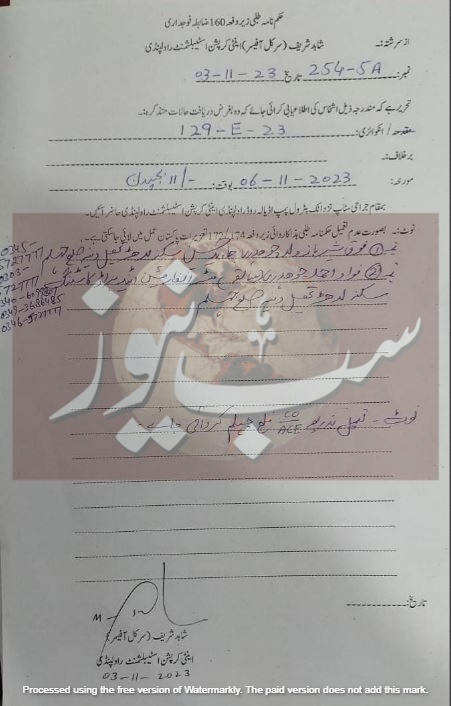 حکم نامہ طلبی زیر دفعہ 160 ضابطہ فوجداری
از سرشتہ:۔ شاہد شریف (سرکل آفیسر) اینٹی کرپشن اسٹیبلشمنٹ راولپنڈی
نمبر: 254-SA تاریخ 03-11-23
تحریر ہے کہ مندرجہ ذیل اشخاص کی اطلاع یابی کرائی جائے کہ وہ بغرض دریافت حالات مقدمہ:۔
مقدمہ / انکوائری: 129-E-23
برخلاف:۔
مورخہ: 06-11-2023 بوقت: 11/- بجے دن
بمقام جراحی سٹاپ نزد اٹک پٹرول پمپ اڈیالہ روڈ راولپنڈی اینٹی کرپشن اسٹیبلشمنٹ راولپنڈی حاضر آئیں۔
نوٹ:۔ بصورت عدم تعمیل حکمنامہ طلبی ہذا کاروائی زیر دفعہ 172/174 تعزیرات پاکستان عمل میں لائی جا سکتی ہے۔
0345-
5727777
0303-
نمبر ① ولد چوہدری سکنہ لدھڑ تحصیل دینہ ضلع جہلم
نمبر ② فواد احمد چوہدری سابق
0349-3686485
0346-5727777
سکنہ لدھڑ تحصیل دینہ ضلع جہلم
سب نیوز
نوٹ۔ تعمیل بذریعہ CO/ACE ضلع جہلم کروائی جائے۔
تاریخ:
شاہد شریف (سرکل آفیسر)
اینٹی کرپشن اسٹیبلشمنٹ راولپنڈی
03-11-2023
Processed using the free version of Watermarkly. The paid version does not add this mark.